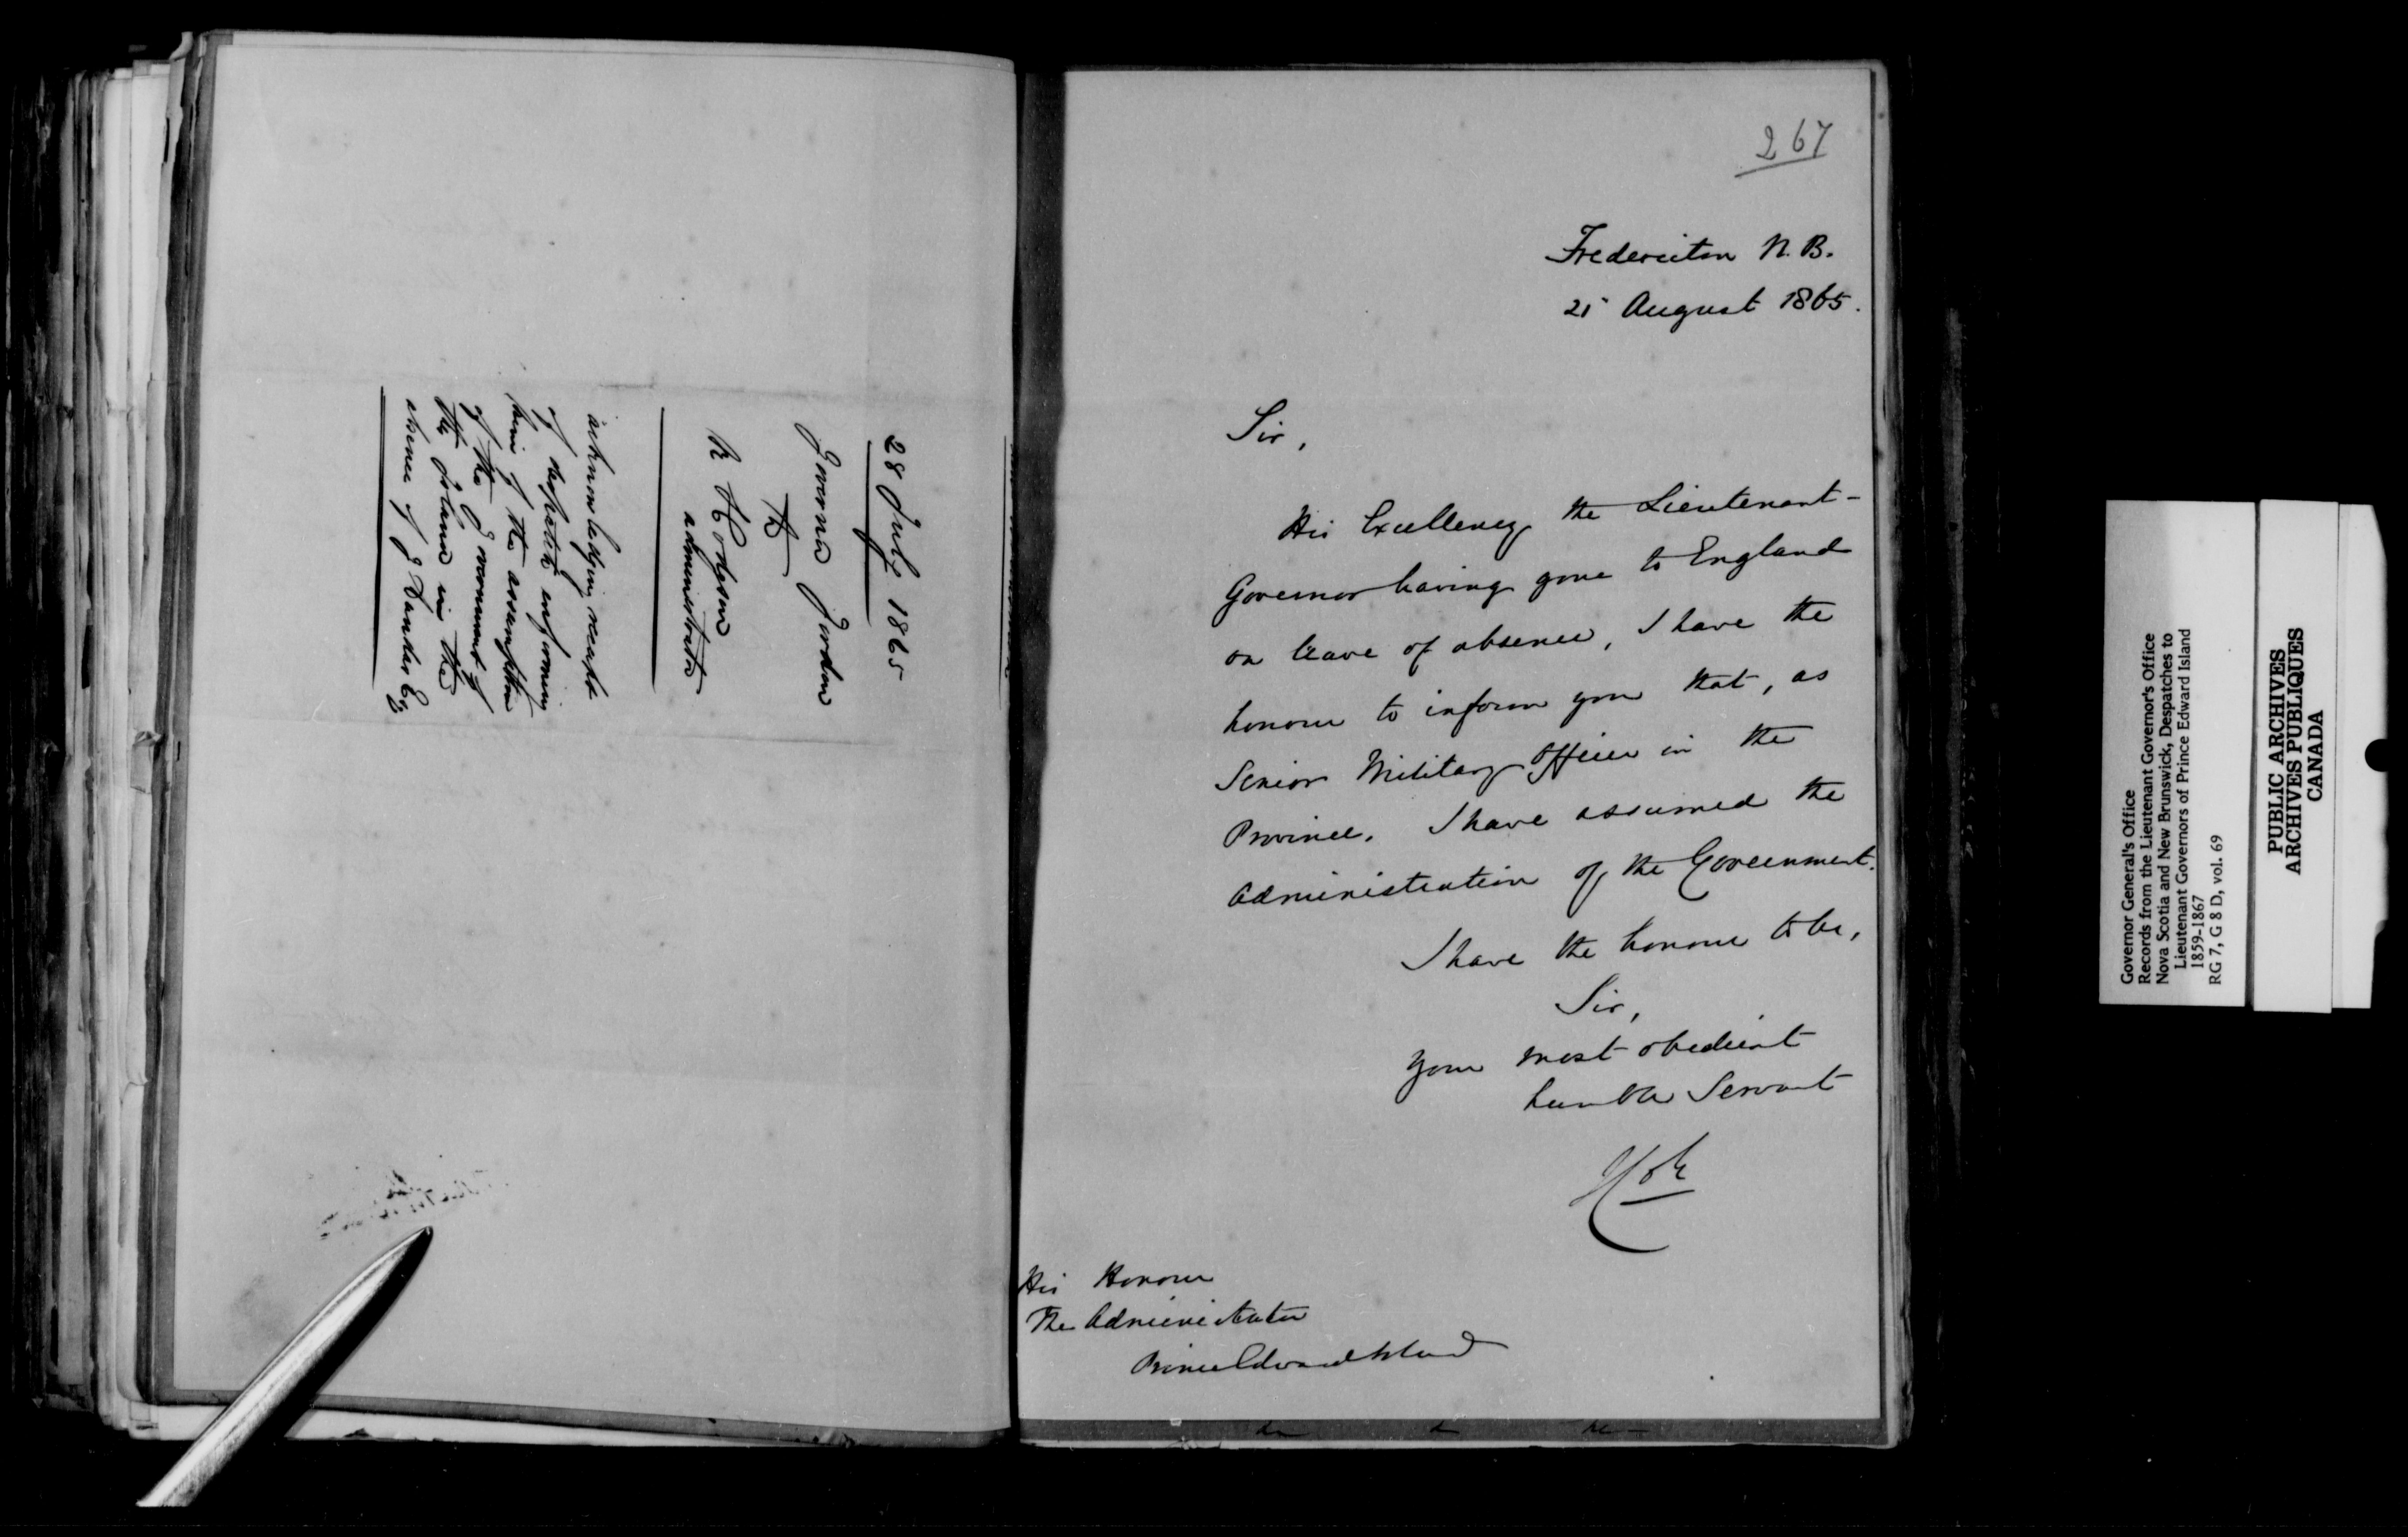 28 July 1865
Governor Gordon
To
R Hodgson
administrator
acknowledging receipt
of despatch informing
him of the assumption
of the Government of
the Island in the
absence of G Dundas Esq
267
Fredericton N. B.
21 August 1865.
Sir,
His Excellency the Lieutenant-
Governor having gone to England
on leave of absence, I have the
honour to inform you that, as
Senior Military Officer in the
Province, I have assumed the
Administration of the Government.
I have the honour to be,
Sir,
Your most obedient
humble Servant
His Honour
The Administrator
Prince Edward Island
Governor General's Office
Records from the Lieutenant Governor's Office
Nova Scotia and New Brunswick, Despatches to
Lieutenant Governors of Prince Edward Island
1859-1867
RG 7, G 8 D, vol. 69
PUBLIC ARCHIVES
ARCHIVES PUBLIQUES
CANADA